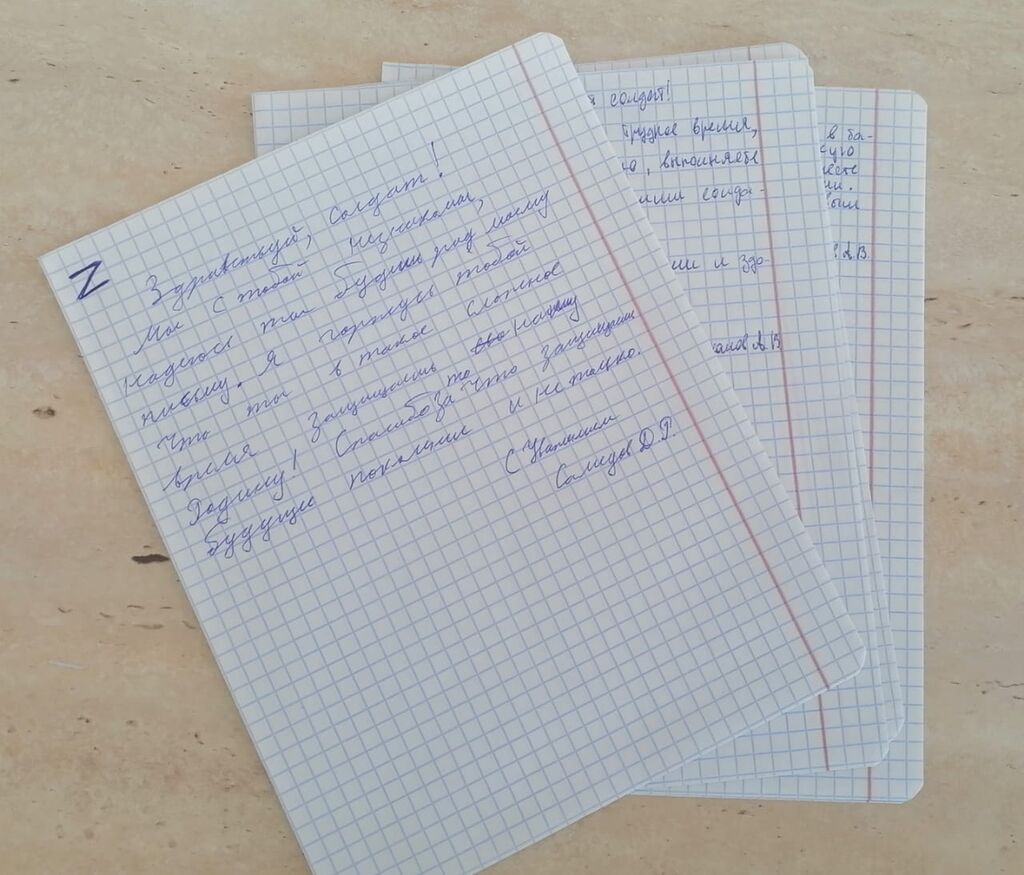 Z
Здравствуй, солдат!
Мы с тобой незнакомы,
надеюсь ты будешь рад моему
письму. Я горжусь тобой
что ты в такое сложное
время защищаешь нашу
Родину! Спасибо за то что защищаешь
будущие поколения и не только.
С Уважением
Самедов Д.Р.
солдат!
трудное время,
ю, выполняете
ими солда-
ии и здо-
анов А.В
в ба-
ии.
был
в А.В.